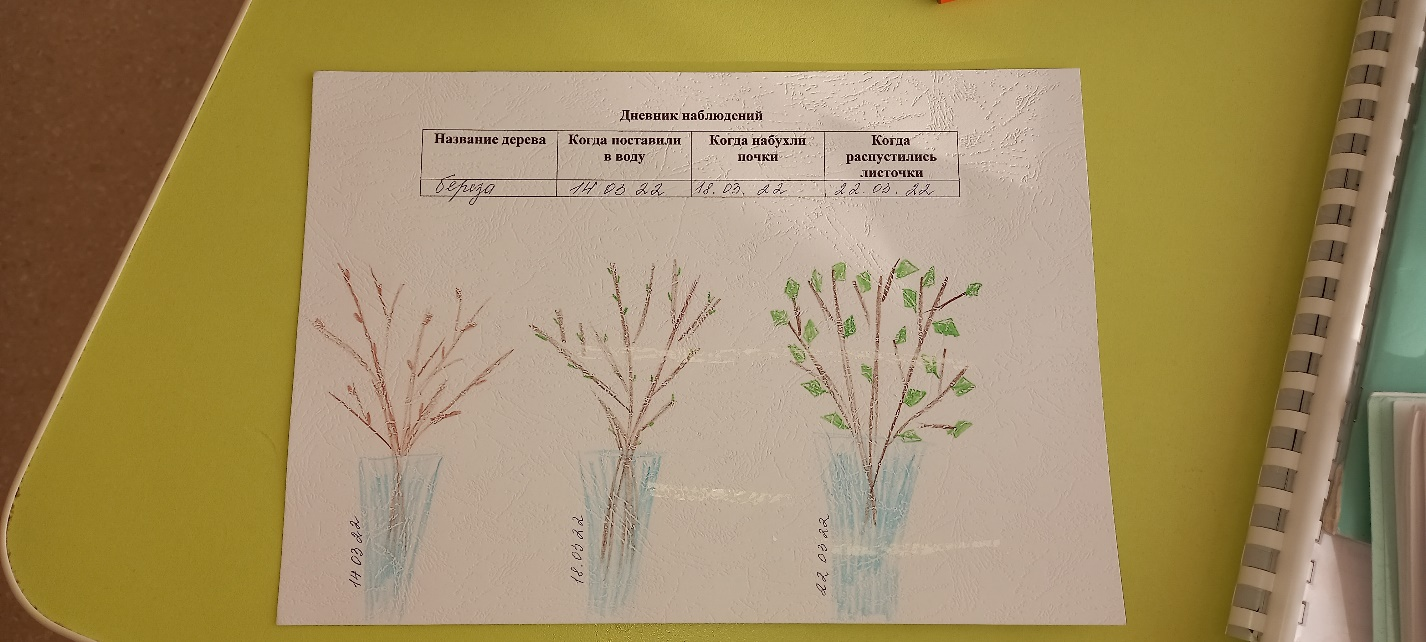 Дневник наблюдений
Название дерева Когда поставили в воду Когда набухли почки Когда распустились листочки
берёза 14 03 22 18.03. 22 22. 03. 22
14 03 22
18.03 22
22 03 22